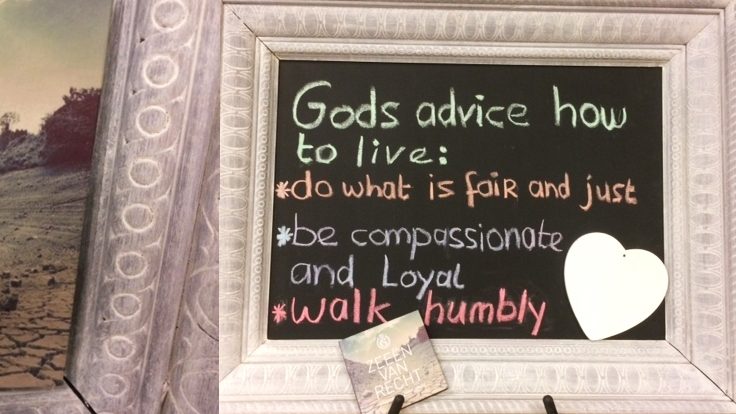 Gods advice how
to live:
*do what is faiR and just
*be compassionate
and Loyal
*walk humbly
ZEFEN
VAN
RECHT